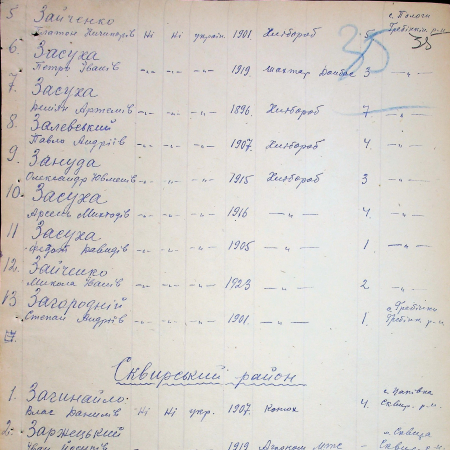 5 Зайченко с. Пологи
Платон Никифорів Ні Ні україн. 1901 Хлібороб 5 Гребінк. р-н
6. Засуха
Петро Іванів -„- -„- -„- 1919 шахтар Донбас 3 —„—
7. Засуха
Демян Артемів -„- -„- -„- 1896 Хлібороб 7 —„—
8. Залевський
Павло Андріїв -„- -„- -„- 1907 Хлібороб 4. —„—
9. Зануда
Олександр Ювменів -„- -„- -„- 1915 Хлібороб 3 —„—
10. Засуха
Арсень Миходів -„- -„- -„- 1916 —„— 4. —„—
11 Засуха
Федот Давидів -„- -„- -„- 1905 —„— 1. —„—
12. Зайченко
Микола Іванів -„- -„- -„- 1923 —„— 2 —„—
13 Загородній с Гребінки
Степан Андріїв -„- -„- -„- 1901. —„— 1. Гребінк. р-н.
Сквирський район
1. Загинайло.
Влас Данилів Ні Ні укр. 1907 Конюх 4. Сквир. р-н.
2. Заржецький с. Сквира
1919 Агроном МТС Сквир. р-н.